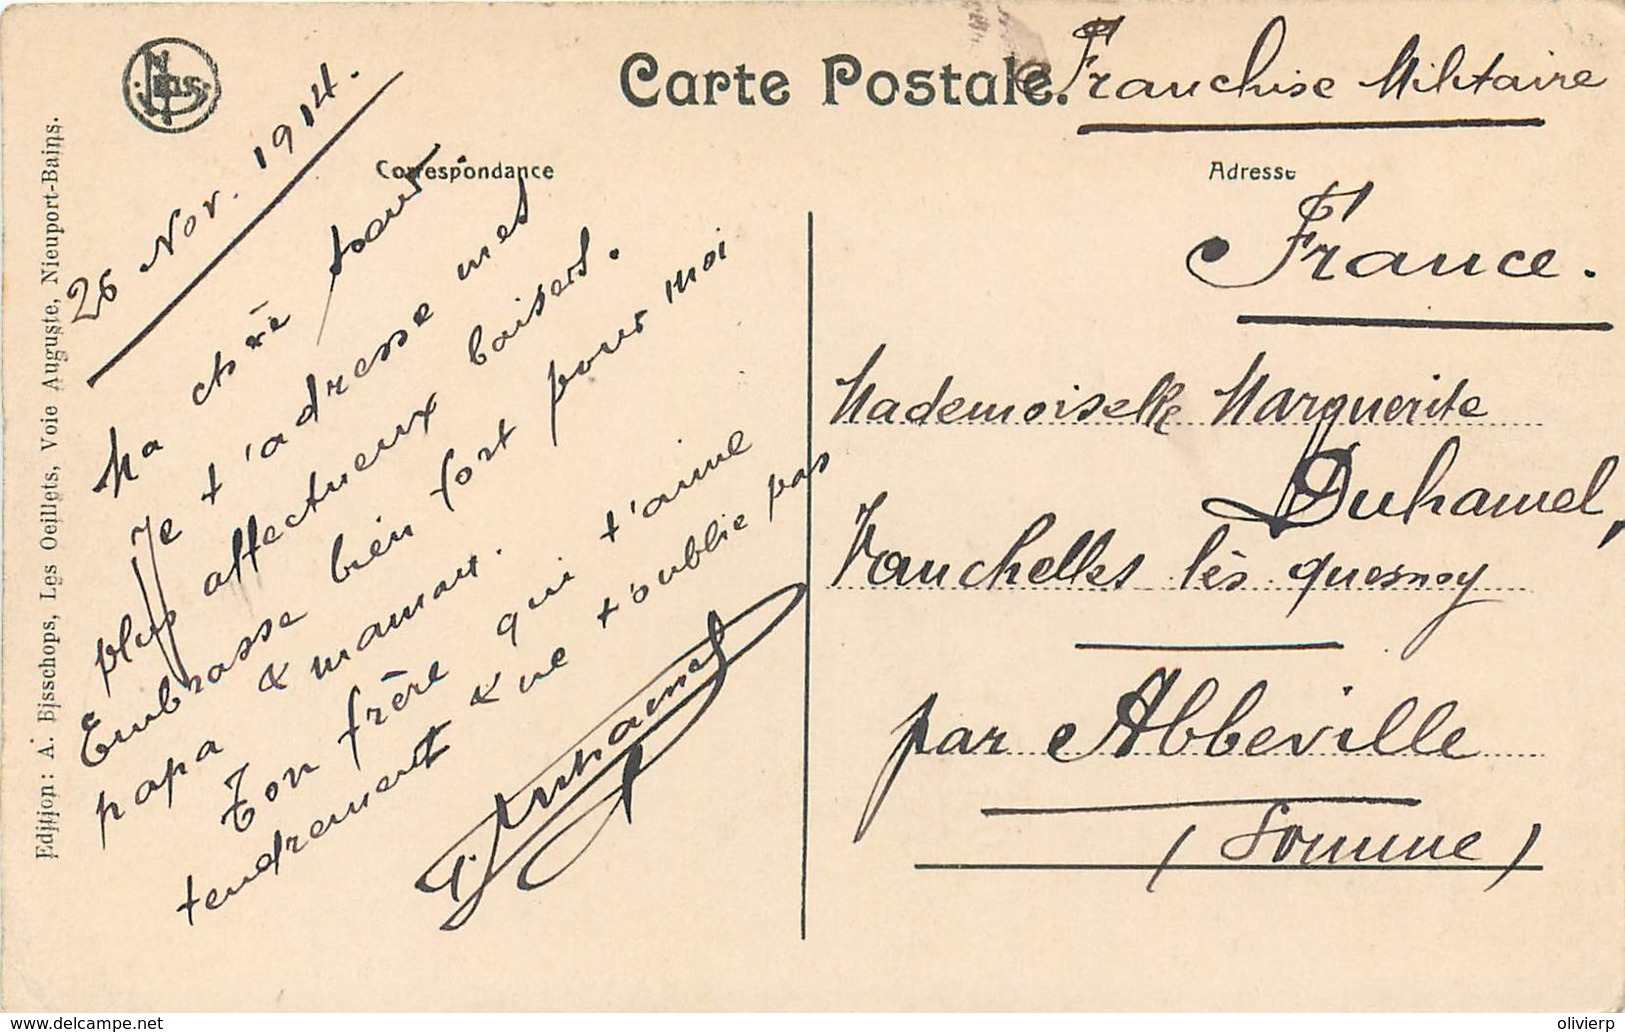 Carte Postale.
Franchise Militaire
Correspondance
Adresse
26 Nov. 1914.
Ma chère sœur
Je t'adresse mes
plus affectueux baisers.
Embrasse bien fort pour moi
papa & maman.
Ton frère qui t'aime
tendrement & ne t'oublie pas
Duhamel
France.
Mademoiselle Marguerite
Duhamel,
Vauchelles lès quesnoy
par Abbeville
(Somme)
Edition: A. Bisschops, Les Oeillets, Voie Auguste, Nieuport-Bains.
www.delcampe.net
olivierp